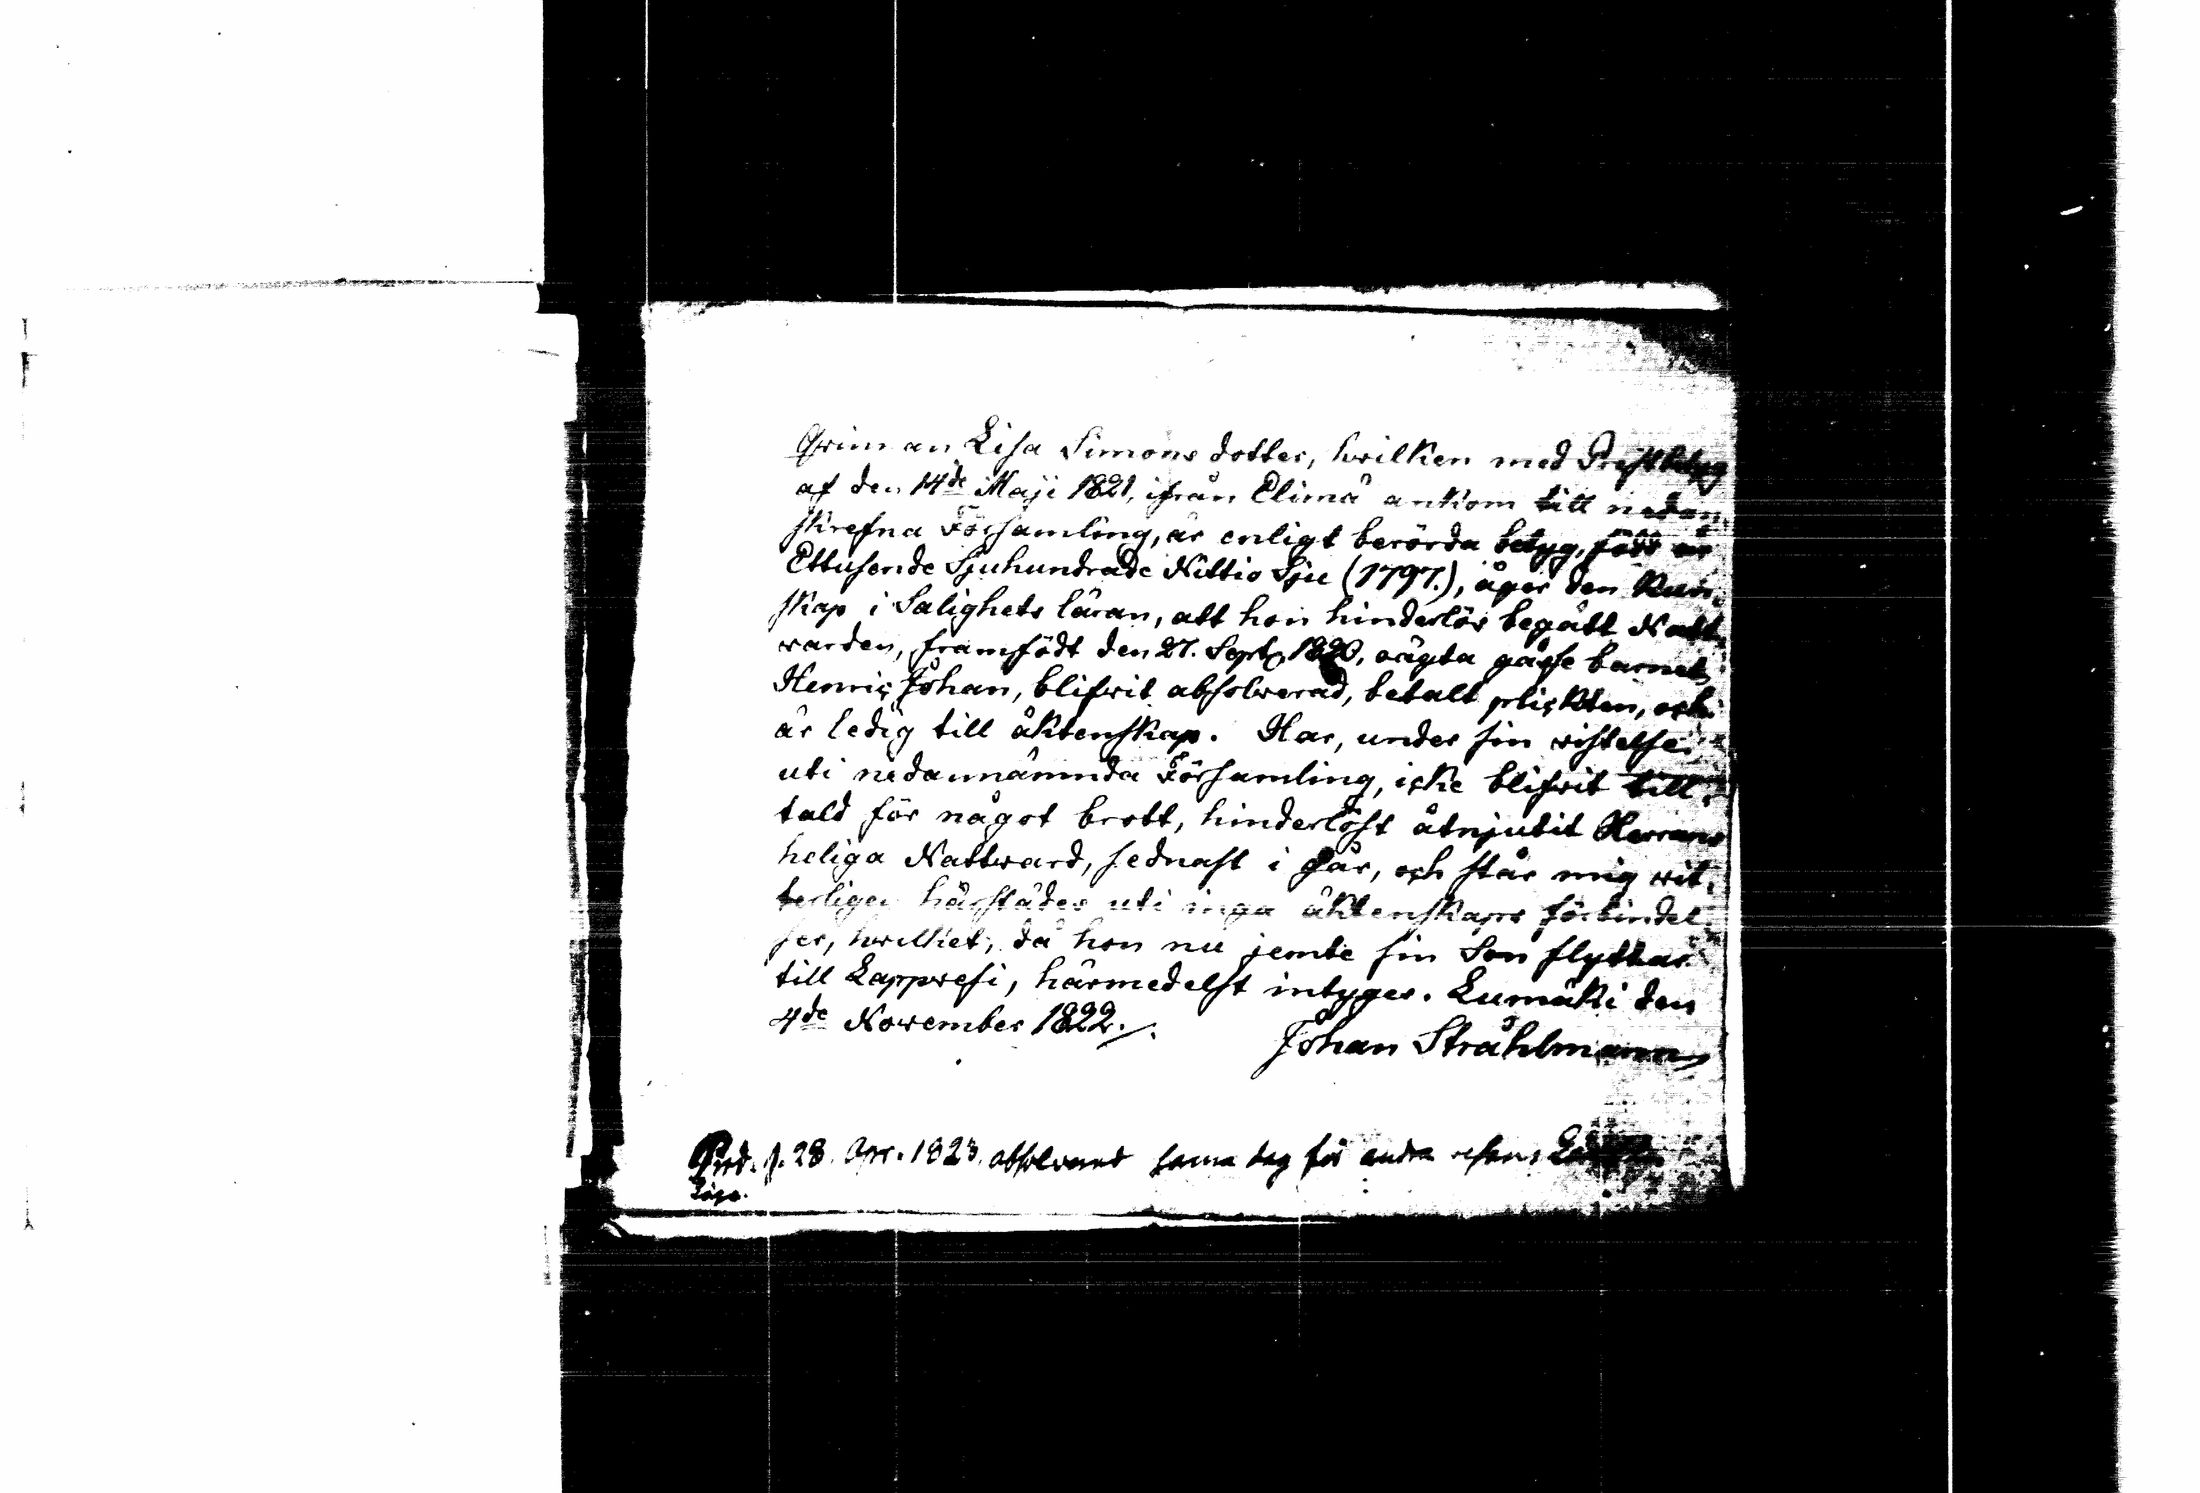 Qwinnan Lisa Simons dotter, hwilken med Prestbetyg
af den 14de Maji 1821, ifrån Elimä ankom till nedan-
skrefna Församling, är enligt berörda betyg, född år
Ettusende Sjuhundrade Nittio Sju (1797.), äger den Kun-
skap i Salighets läran, att hon hinderlös begått Natt-
warden, framfödt den 27. Sept. 1820, oägta gåsse barnet
Henric Johan, blifwit absolverad, betalt plickten, och
är ledig till äktenskap. Har, under sin wistelse
uti nedannämnda Församling, icke blifwit till-
tald för något brott, hinderlöst åtnjutit Herrans
heliga Nattward, sednast i går, och står mig wit-
terligen härstädes uti inga äktenskaps förbindel-
ser, hwilket, då hon nu jemte sin Son flyttar
till Lappvesi, härmedelst intyges. Lumäki den
4de November 1822./.
Johan Stråhlmann
Prod. d. 28. Apr. 1823. absolverad sama dag för andra resans
Läge.